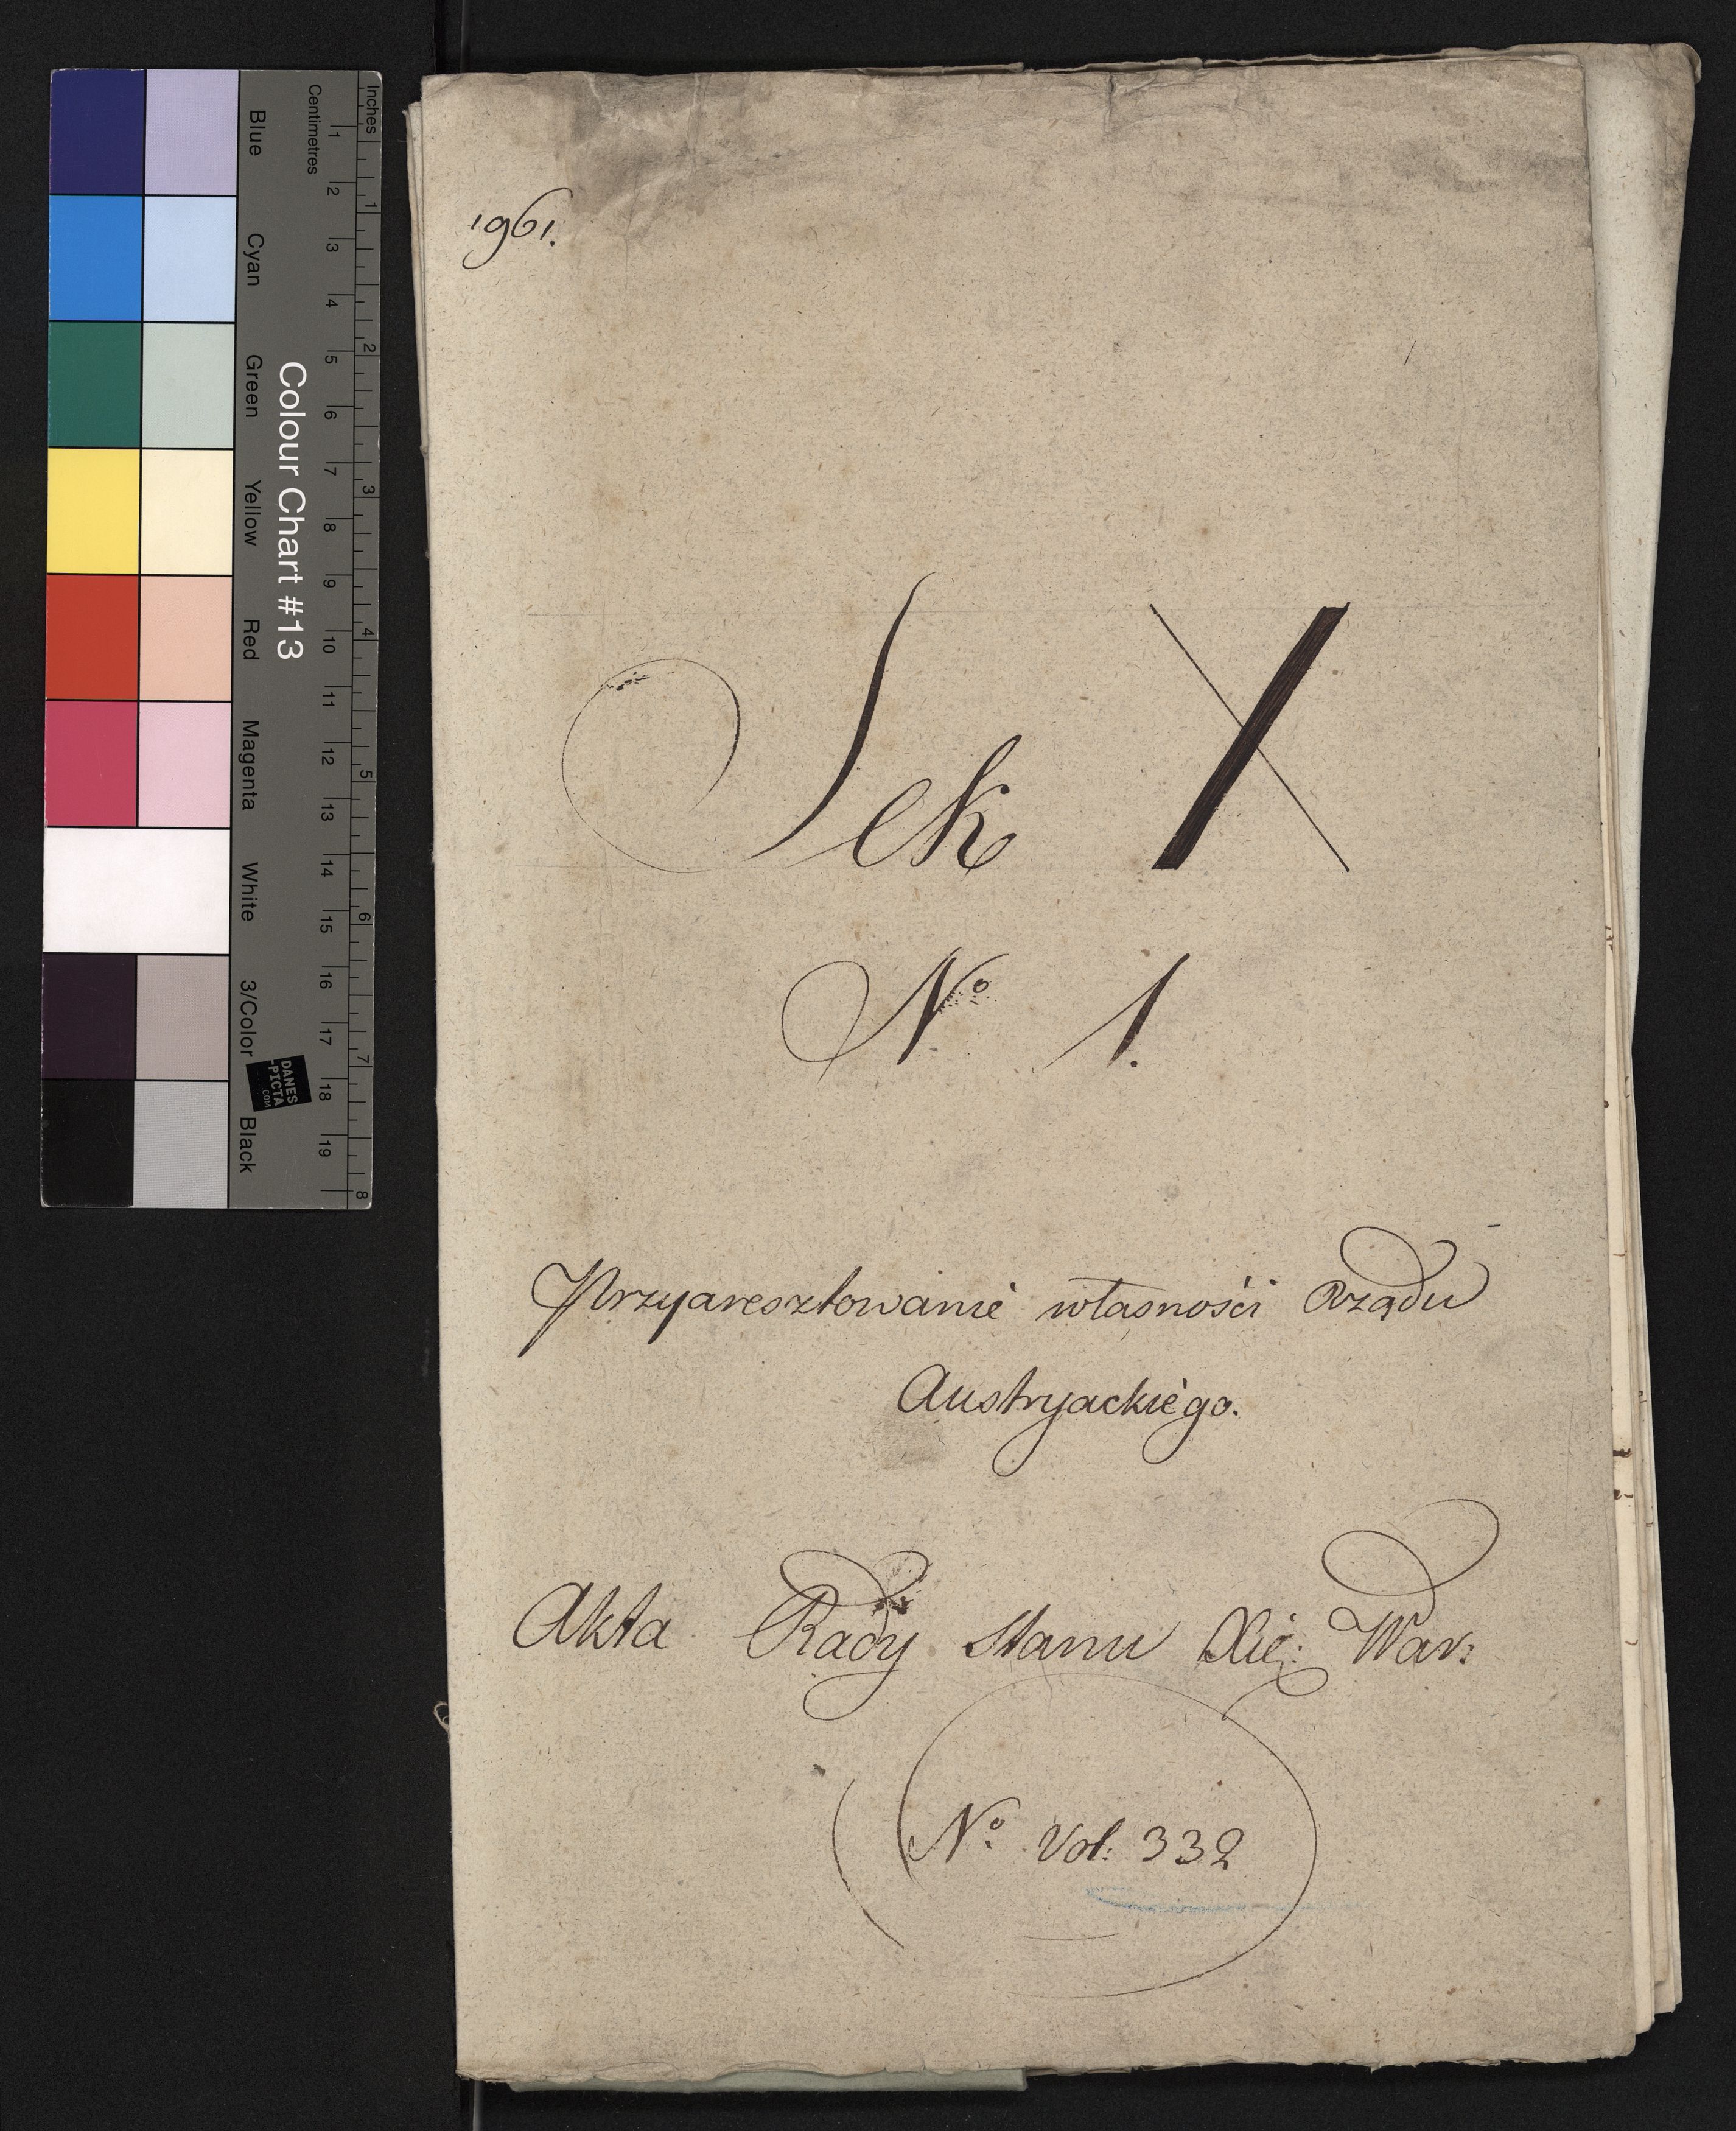 1961.
Sek X
No 1.
Przyaresztowanié własności Rządu
Austryackiégo.
Akta Rady Stanu Xié: War:
No Vol: 332
Inches
Centimetres
1 2 3 4 5 6 7 8 9 10 11 12 13 14 15 16 17 18 19
1 2 3 4 5 6 7 8
Colour Chart #13
Blue
Cyan
Green
Yellow
Red
Magenta
White
3/Color
Black
DANES
-PICTA
.COM